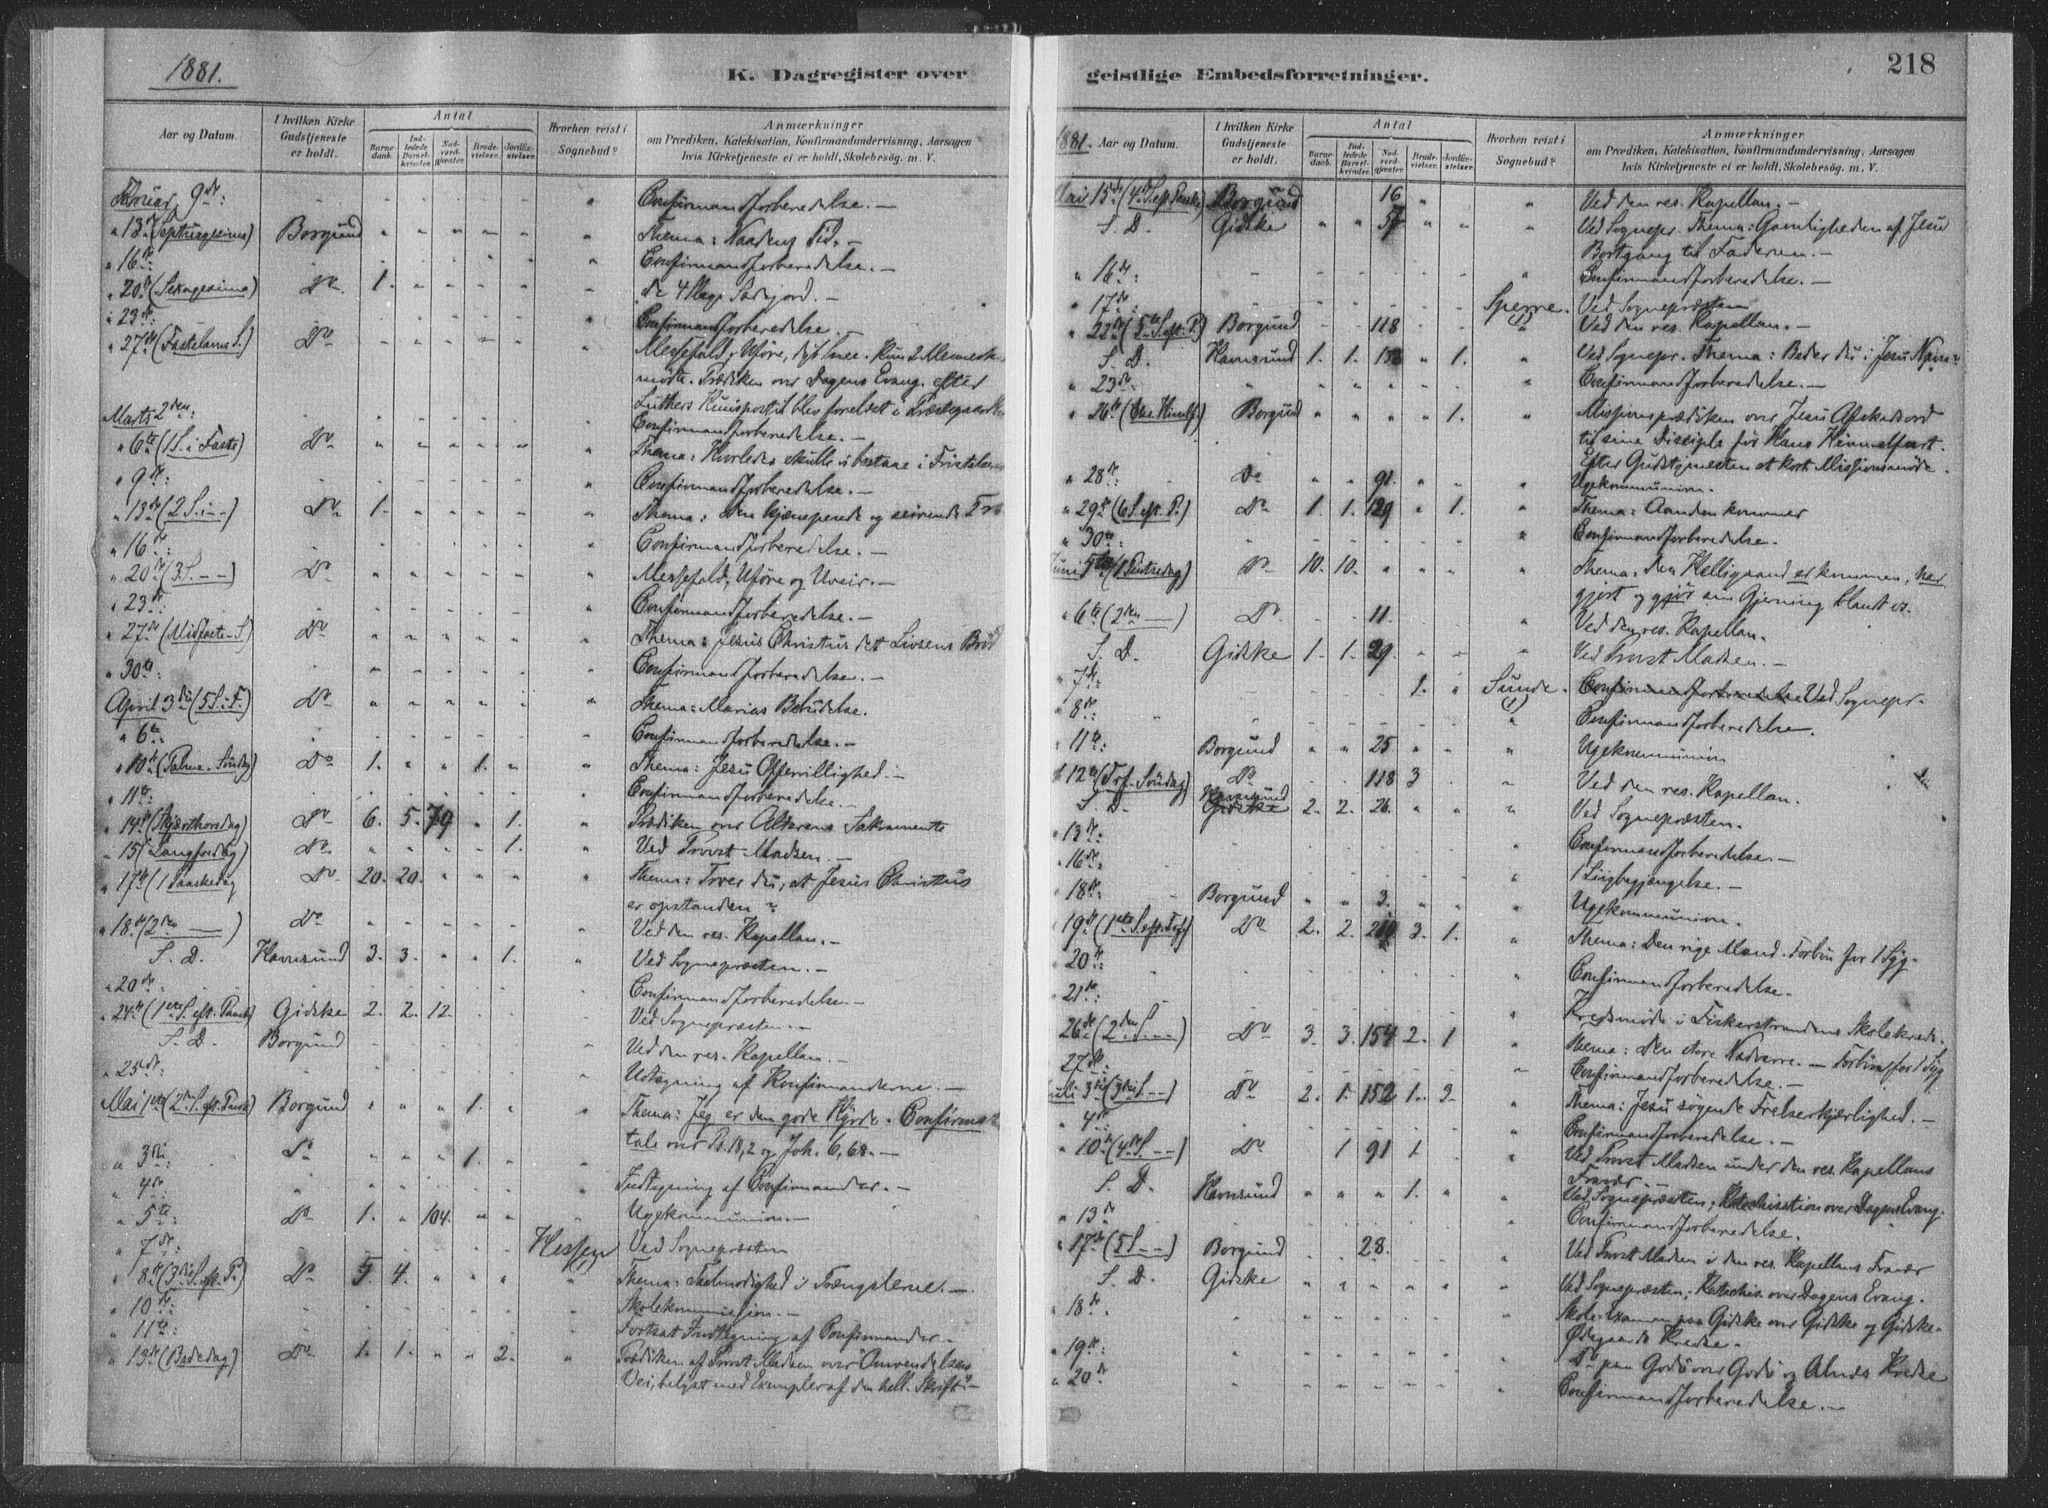 1881.
K. Dagregister over
Aar og Datum.
I hvilken Kirke Gudstjeneste er holdt.
Antal
Barnedaab.
Indledede Barselkvinder.
Nadverdgjæster.
Brudevielser.
Jordfæstelser.
Hvorhen reist i Sognebud?
Anmærkninger
om Prædiken, Katekisation, Konfirmandundervisning, Aarsagen
hvis Kirketjeneste ei er holdt, Skolebesøg. m. V.
Februar 9de: " Confirmandforberedelse. —
" 13de (Septuagesima) Borgund " " " " " " Thema: Naadens Tid. —
" 16de: " Confirmandforberedelse. —
" 20de (Sexagesima) Do. 1. " " " " " De 4 Slags Sædejord. —
" 23de: " Confirmandforberedelse. —
" 27de (Fastelavns S.) Do " " " " " " Messefald, Uføre, dyb Snee. Kun 2 Mennesker
mødte. Prædiken over Dagens Evang. efter
Luthers Huuspostil blev forelæst i Præstegaarden
Marts 2den: " Confirmandforberedelse. —
" 6te (1 S. i Faste) Do " " " " " " Thema: Hvorledes skulle vi bestaae i Fristelsen
" 9de: " Confirmandforberedelse. —
" 13de (2 S. i —) Do 1. " " " " " Thema: Den kjæmpende og seirende Tro
" 16de: " Confirmandforberedelse. —
" 20de (3. S. — —) Do " " " " " " Messefald, Uføre og Uveir. —
" 23de: " Confirmandforberedelse. —
" 27de (Midfaste-S) Do " " " " " " Thema: Jesus Christus det Livsens Brød
" 30te: " Confirmandforberedelse. —
April 3die (5 S. i F.) Do " " " " " " Thema: Marias Bebudelse.
" 6te: " Confirmandforberedelse. —
" 10de (Palme-Søndag) Do 1. " " 1. " " Thema: Jesu Offervillighed. —
" 11te: " Confirmandforberedelse. —
" 14de (Skjærthorsdag) Do 6. 5. 79 " 1. " Prædiken over Alterens Sakramente
" 15 (Langfredag) Do " " " " 1. " Ved Provst Madsen. —
" 17de (1 Paaskedag Do 20. 20. " " " " Thema: Troer du, at Jesus Christus
er opstanden?
" 18de (2den —) Do " " " " " " Ved den res. Kapellan. —
S. D. Havnsund 3. 3. " " 1. " Ved Sognepræsten. —
" 20de " Confirmandforberedelse. —
" 24de (1ste S. eft. Paaske) Gidske 2. 2. 12. " Ved Sognepræsten. —
S. D. Borgund " Ved den res. Kapellan. —
" 25de: " Udtagning af Konfirmanderne. —
Mai 1ste (2den S. eft. Paaske) Borgund " " " 1. " " Thema: Jeg er den gode Hyrde. Confirmations
tale over 18,2 og Joh. 6, 68. —
" 3die: Do " " " 1. "
" 4de " Indtagning af Confirmander. —
" 5te: Do 1. " 104. " " Ugekommunion. —
" 7de: Hessen (1) Ved Sognepræsten
" 8de (3die S. eft. P.) Do 5. 4. " " " " Thema: Taalmodighed i Trængslerne. —
" 10de: " Skolekommission. —
" 11te: " Fortsat Indtagning af Confirmander. —
" 13de (Bededag) Do 1. 1. " " 2. " Prædiken af Provst Madsen over "Omvendelsens
Vei, belyst med Exempler af den hell. Skrift" —
geistlige Embedsforretninger.
218
1881. Aar og Datum.
I hvilken Kirke Gudstjeneste er holdt.
Antal
Barnedaab.
Indledede Barselkvinder.
Nadverdgjæster.
Brudevielser.
Jordfæstelser.
Hvorhen reist i Sognebud?
Anmærkninger
om Prædiken, Katekisation, Konfirmandundervisning, Aarsagen
hvis Kirketjeneste ei er holdt, Skolebesøg. m. V.
Mai 15de (4de S. eft. Paaske) Borgund 16 " " Ved den res. Kapellan. —
S. D. Gidske " " 57 " " " Ved Sognepr. Thema: Gavnligheden af Jesu
Bortgang til Faderen. —
" 16de: " Confirmandforberedelse. —
" 17de: Sperre. (1) Ved Sognepræsten
" 22de (5te S. eft. P.) Borgund 118 " Ved den res. Kapellan. —
S. D. Havnsund 1. 1. " 1. " Ved Sognepr. Thema: Beder du i Jesu Navn?
" 23de: " Confirmandforberedelse. —
" 26te (Chr. Himelf.) Borgund " " " " 1. " Missionsprædiken over Jesu Afskedsord
til sine Disciple før Hans Himmelfart.
Efter Gudstjenesten et kort Missionsmøde.
" 28de: Do " " 91. " " Ugekommunion.
" 29de (6 S. eft. P.) Do 1. 1. 129 " 1. " Thema: Aanden kommer
" 30te: " Confirmandforberedelse.
Juni 5te (1 Pintsedag) Do 10. 10. " " " Thema: Den Helligaand er kommen, har
gjort og gjør sin Gjerning blandt os.
" 6te (2den —) Do 11. " Ved den res. Kapellan.
S. D. Gidske 1. 1. 29. " " Ved Provst Madsen. —
" 7de: 1. " Sunde. (1) Confirmandforberedelse Ved Sognepr.
" 8de: " Confirmandforberedelse.
" 11te: Borgund " " 25. " " " Ugekommunion
" 12te (Tref. Søndag) Do 118 3 " Ved den res. Kapellan.
S. D. Havnsund Gidske 2. 2. 26. " " " Ved Sognepræsten.
" 13de: " Confirmandforberedelse. —
" 16de: " 1 Liigbegjængelse. —
" 18de: Borgund " " 3. " " " Ugekommunion.
" 19de (1ste S. eft. Tref.) Do 2. 2. 3. 1. " Thema: Den rige Mand. Forbøn for 1 Syg.
" 20de: " Confirmandforberedelse.
" 21de: " Kredsmøde i Fiskerstrandens Skolekreds.
" 26de (2den S. —) Do 3. 3. 154 2. 1 " Thema: Den store Nadverre. — Forbøn for 1 Syg
" 27de: " Confirmandforberedelse. —
Juli 3die (3die S. —) Do 2. 1. 152 1. 3. " Thema: Jesu søgende Frelserkjærlighed. —
" 4de: " Confirmandforberedelse. —
" 10de (4de S. —) Do 1 91 1. " Ved Provst Madsen under den res. Kapellans
Fravær. —
S. D. Havnsund " " " 1. " " Ved Sognepræsten, Katechisation over Dagens Evang.
" 13de " Confirmandforberedelse.
" 17de (5 S. — —) Borgund 28. " Ved Provst Madsen i den res. Kapellans Fravær
S. D. Gidske " " " " " " Ved Sognepræsten; Katechis. over Dagens Evang.
" 18de: " Skole-Examen paa Gidske over Gidske og Gidske-
Ødegaards Kredse.
" 19de: " Do paa Godø over Godø og Alnæs Kredse
" 20de " Confirmandforberedelse. —